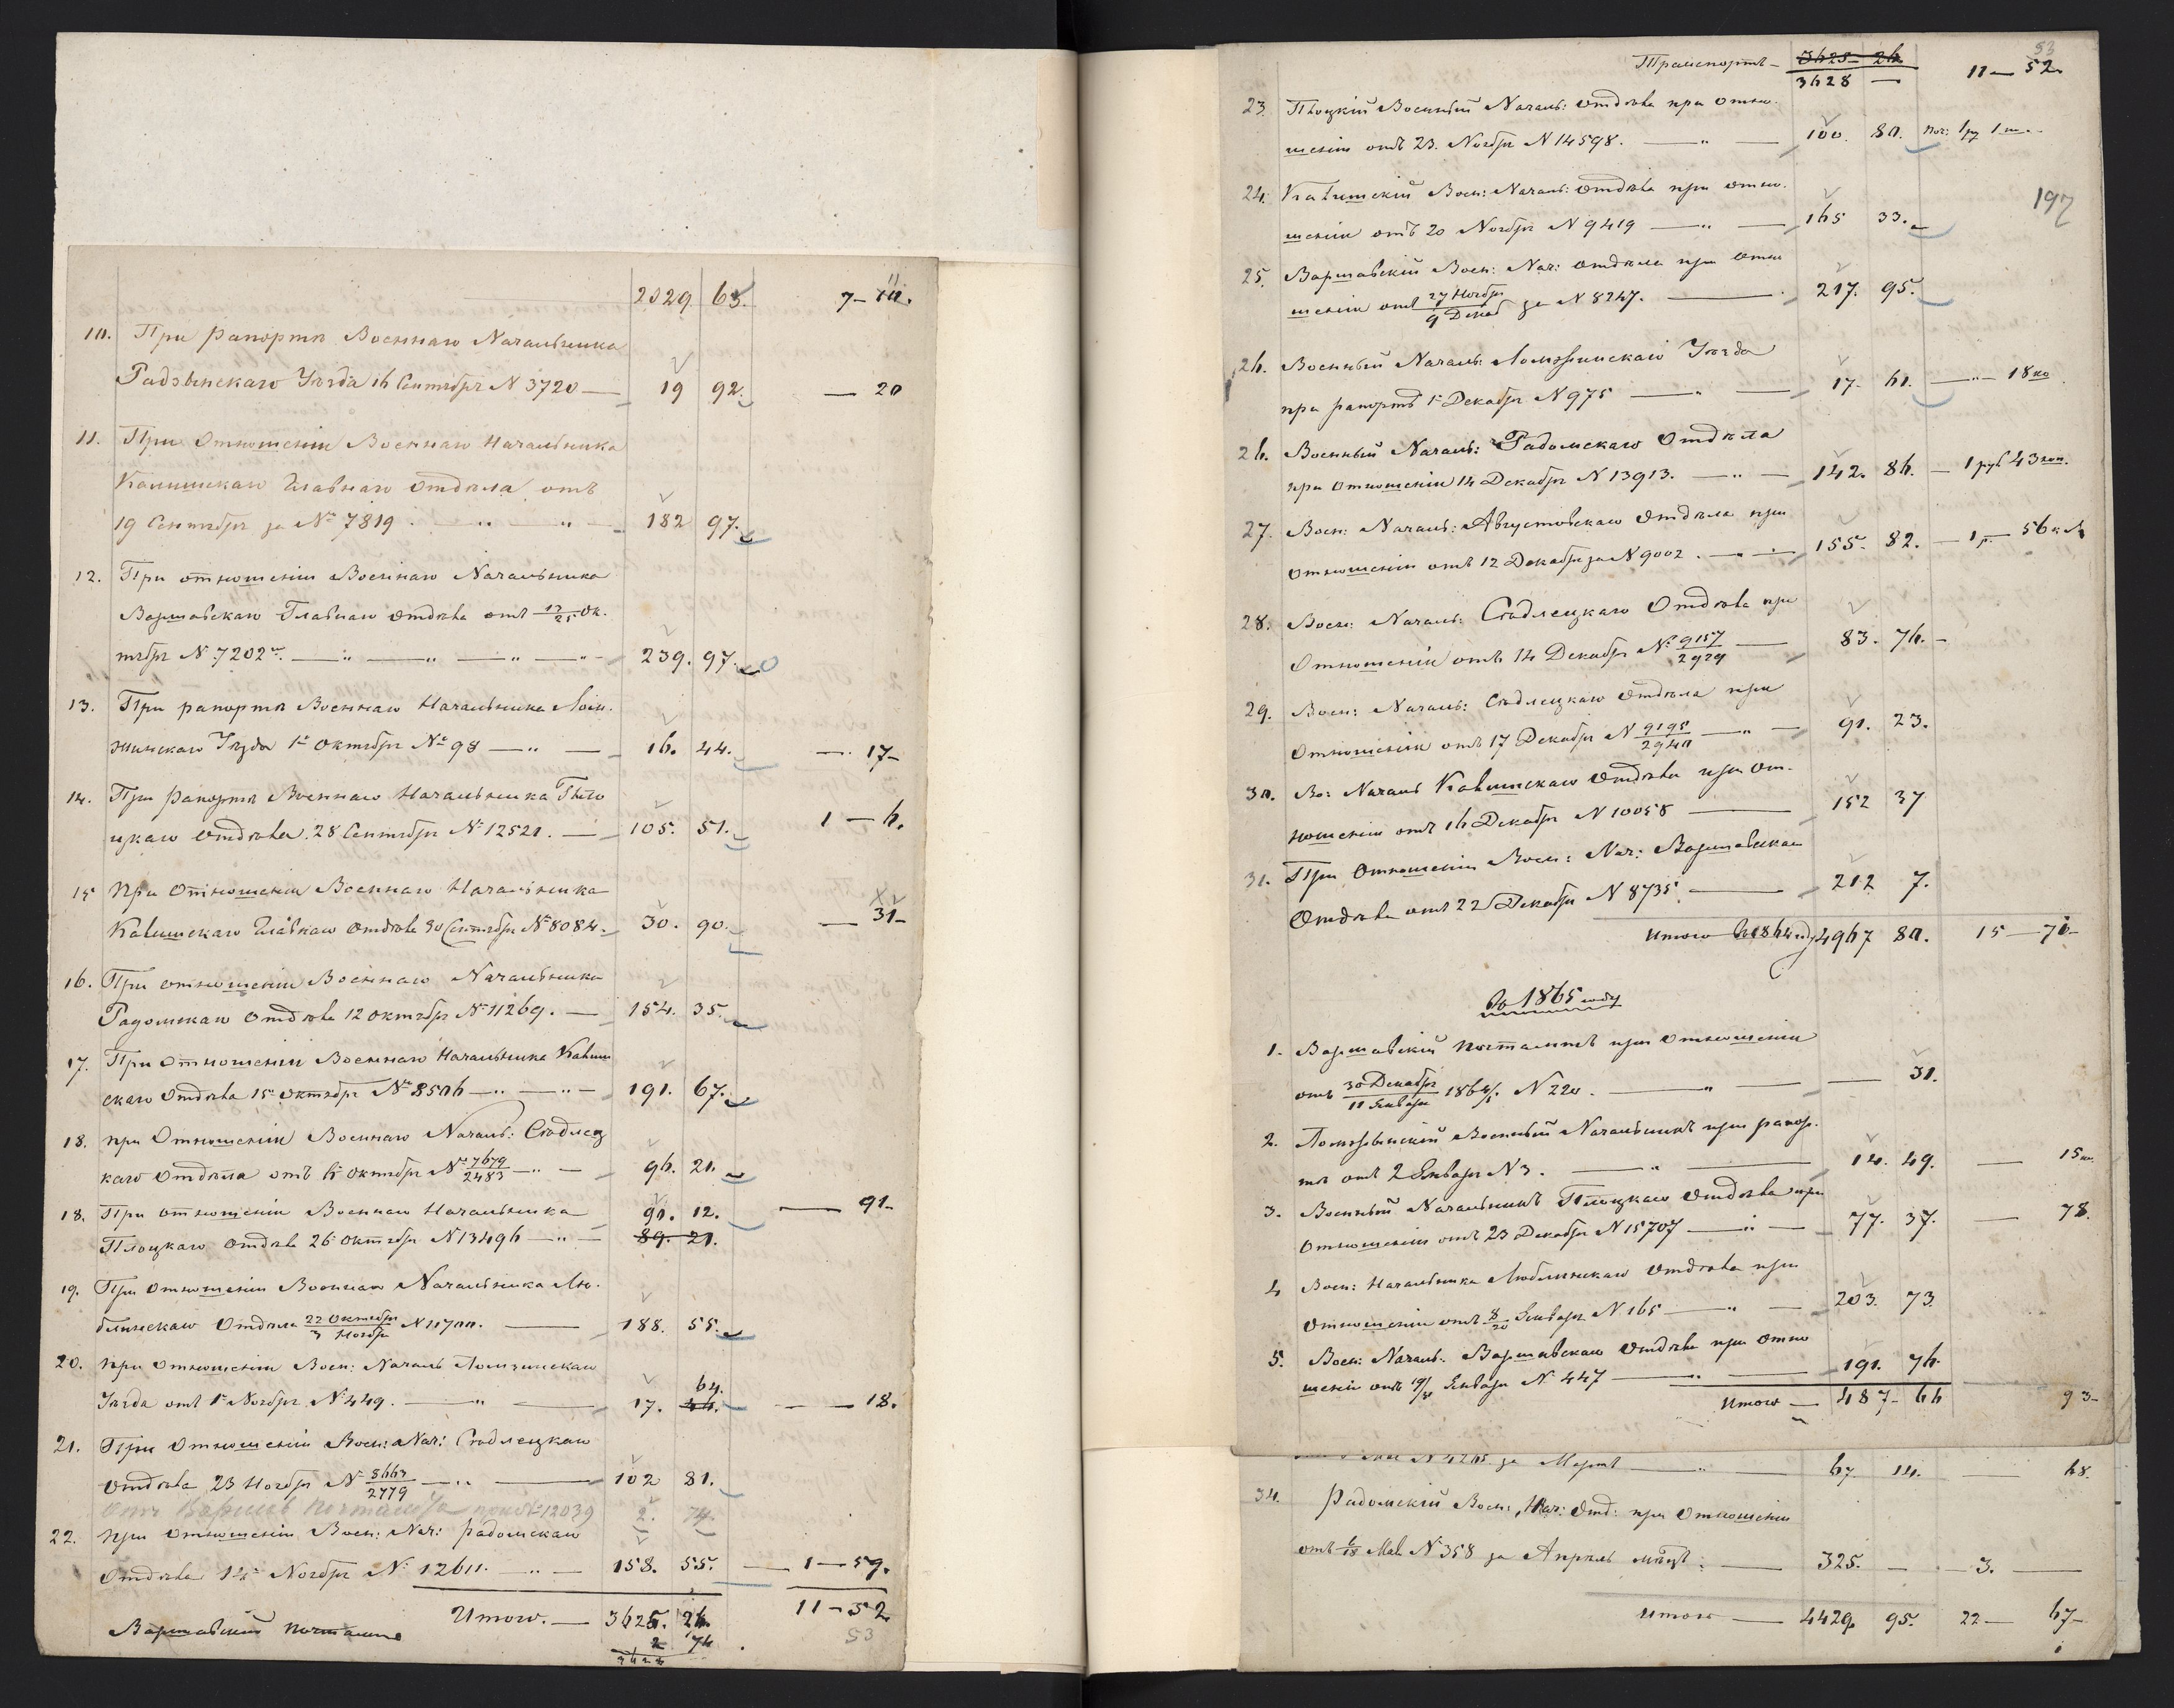 2029 63. 7-10. 11
10. При рапортѣ Военнаго Начальника
Радзынскаго Уѣзда 16 Сентября N 3720 — 19 92. — 20
11. При Отношеніи Военнаго Начальника
Калишскаго Главнаго Отдѣла отъ
19 Сентября за № 7819. — " — " — 182 97.
12. При отношеніи Военнаго Начальника
Варшавскаго Главнаго Отдѣла отъ 13/25 Ок.
тября N 7202. — " — " — " — " — 239. 97.
13. При рапортѣ Военнаго Начальника Лом.
жинскаго Уѣзда 1го Октября № 98 — " — 16. 44. — 17-
14. При рапортѣ Военнаго Начальника Пло
цкаго Отдѣла 28 Сентября № 12521. — 105. 51. 1 — 6.
15 При Отношеніи Военнаго Начальника
Калишскаго Главнаго Отдѣла 30 Сентября № 8084. 30. 90. — 31-
16. При отношеніи Военнаго Начальника
Радомскаго Отдѣла 12 Октября № 11269. — 154. 35.
17. При Отношеніи Военнаго Начальника Калиш
скаго Отдѣла 15 Октября № 8506 — " — " — 191. 67.
18. При Отношеніи Военнаго Началь: Сѣдлец
каго Отдѣла отъ 6 Октября № 7679/2483 — " — 96. 21.
18. При отношеніи Военнаго Начальника 90. 12. — 91-
Плоцкаго Отдѣла 26 Октября N 13496 — " — 89. 21.
19. При Отношеніи Военнаго Начальника Лю.
блинскаго Отдѣла 22 Октября/3 Ноября N 11700. — 188. 55.
20. При Отношеніи Воен: Началь Ломжинскаго
Уѣзда отъ 1го Ноября N 449. — " — 17. 44. 64. — — 18.
21. При Отношеніи Воен: Нач: Сѣдлецкаго
Отдѣла 23 Ноября № 8663/2779 — " — 102 81.
отъ Варшав Почтамта 12039 2. 74.
22. При Отношеніи Воен: Нач: Радомскаго
Отдѣла 14 Ноября № 12611. — " — 158. 55. — 1 — 59.
Итого. — 3625. 26. 11 - 52
Варшавскій Почтамтъ 2 74
3628 53
53
Транспортъ — 3625 26 11 — 52
3628 —
23. Плоцкій Военный Началь: Отдѣла при отно.
шеніи отъ 23. Ноября N 14598. — " — 100. 80.
24. Калишскій Воен: Началь: Отдѣла при отно. 197
шеніи отъ 20 Ноября N 9419 — " — 165 33.
25. Варшавскій Воен: Нач: Отдѣла при Отно
шеніи отъ 27 Ноября/9 Декаб за N 8247. — 217. 95.
26. Военный Началь: Ломжинскаго Уѣзда
при рапортѣ 1го Декабря N 975 — " — 17. 61. — " — 18 ко
26. Военный Началь: Радомскаго Отдѣла
при Отношеніи 14 Декабря N 13913. — " — 142. 86. — 1 руб 43 коп.
27. Воен: Началь: Августовскаго Отдѣла при
Отношеніи отъ 12 Декабря за N 9002. — " — 155. 82. — 1 р — 56 к
28. Воен: Началь: Сѣдлецкаго Отдѣла при
Отношеніи отъ 14 Декабря № 9157/2929 — 83. 76. -
29. Воен: Началь: Сѣдлецкаго Отдѣла при
Отношеніи отъ 17 Декабря N 9195/2940 — " — 91. 23.
30. Во: Началь Калишскаго Отдѣла при От.
ношеніи отъ 16 Декабря N 10058 — 152 37
31. При Отношеніи Воен: Нач: Варшавскаго
Отдѣла отъ 22 Декабря N 8735. — 212 7.
Итого въ 1864 году 4967 80. 15 — 70-
Въ 1865 году
1. Варшавскій Почтамтъ при Отношеніи
отъ 30 Декабря/11 Января 1864/5. N 220. — " — — 31.
2. Ломжинскій Военный Начальникъ при рапор.
тѣ отъ 2 Января N 3. — " — 14. 49. — 15 ко.
3. Военный Начальникъ Плоцкаго Отдѣла при
Отношеніи отъ 23 Декабря N 15707 — " — 77. 37. — 78
4 Воен: Начальника Люблинскаго Отдѣла при
Отношеніи отъ 8/20 Января N 165 — " — 203. 73.
5. Воен: Началь. Варшавскаго Отдѣла при Отно
шеніи отъ 19/31 Января N 447 — " — 191. 76.
Итого — 487- 66 93-
N 4265 за Мартъ — " — 67. 14. — 68.
34. Радомскій Воен: Нач: Отд: при Отношеніи
отъ 6/18 Мая N 358 за Апрѣль мѣсяцъ: — 325. — — 3. —
Итого — 4429 95. 22 — 67-